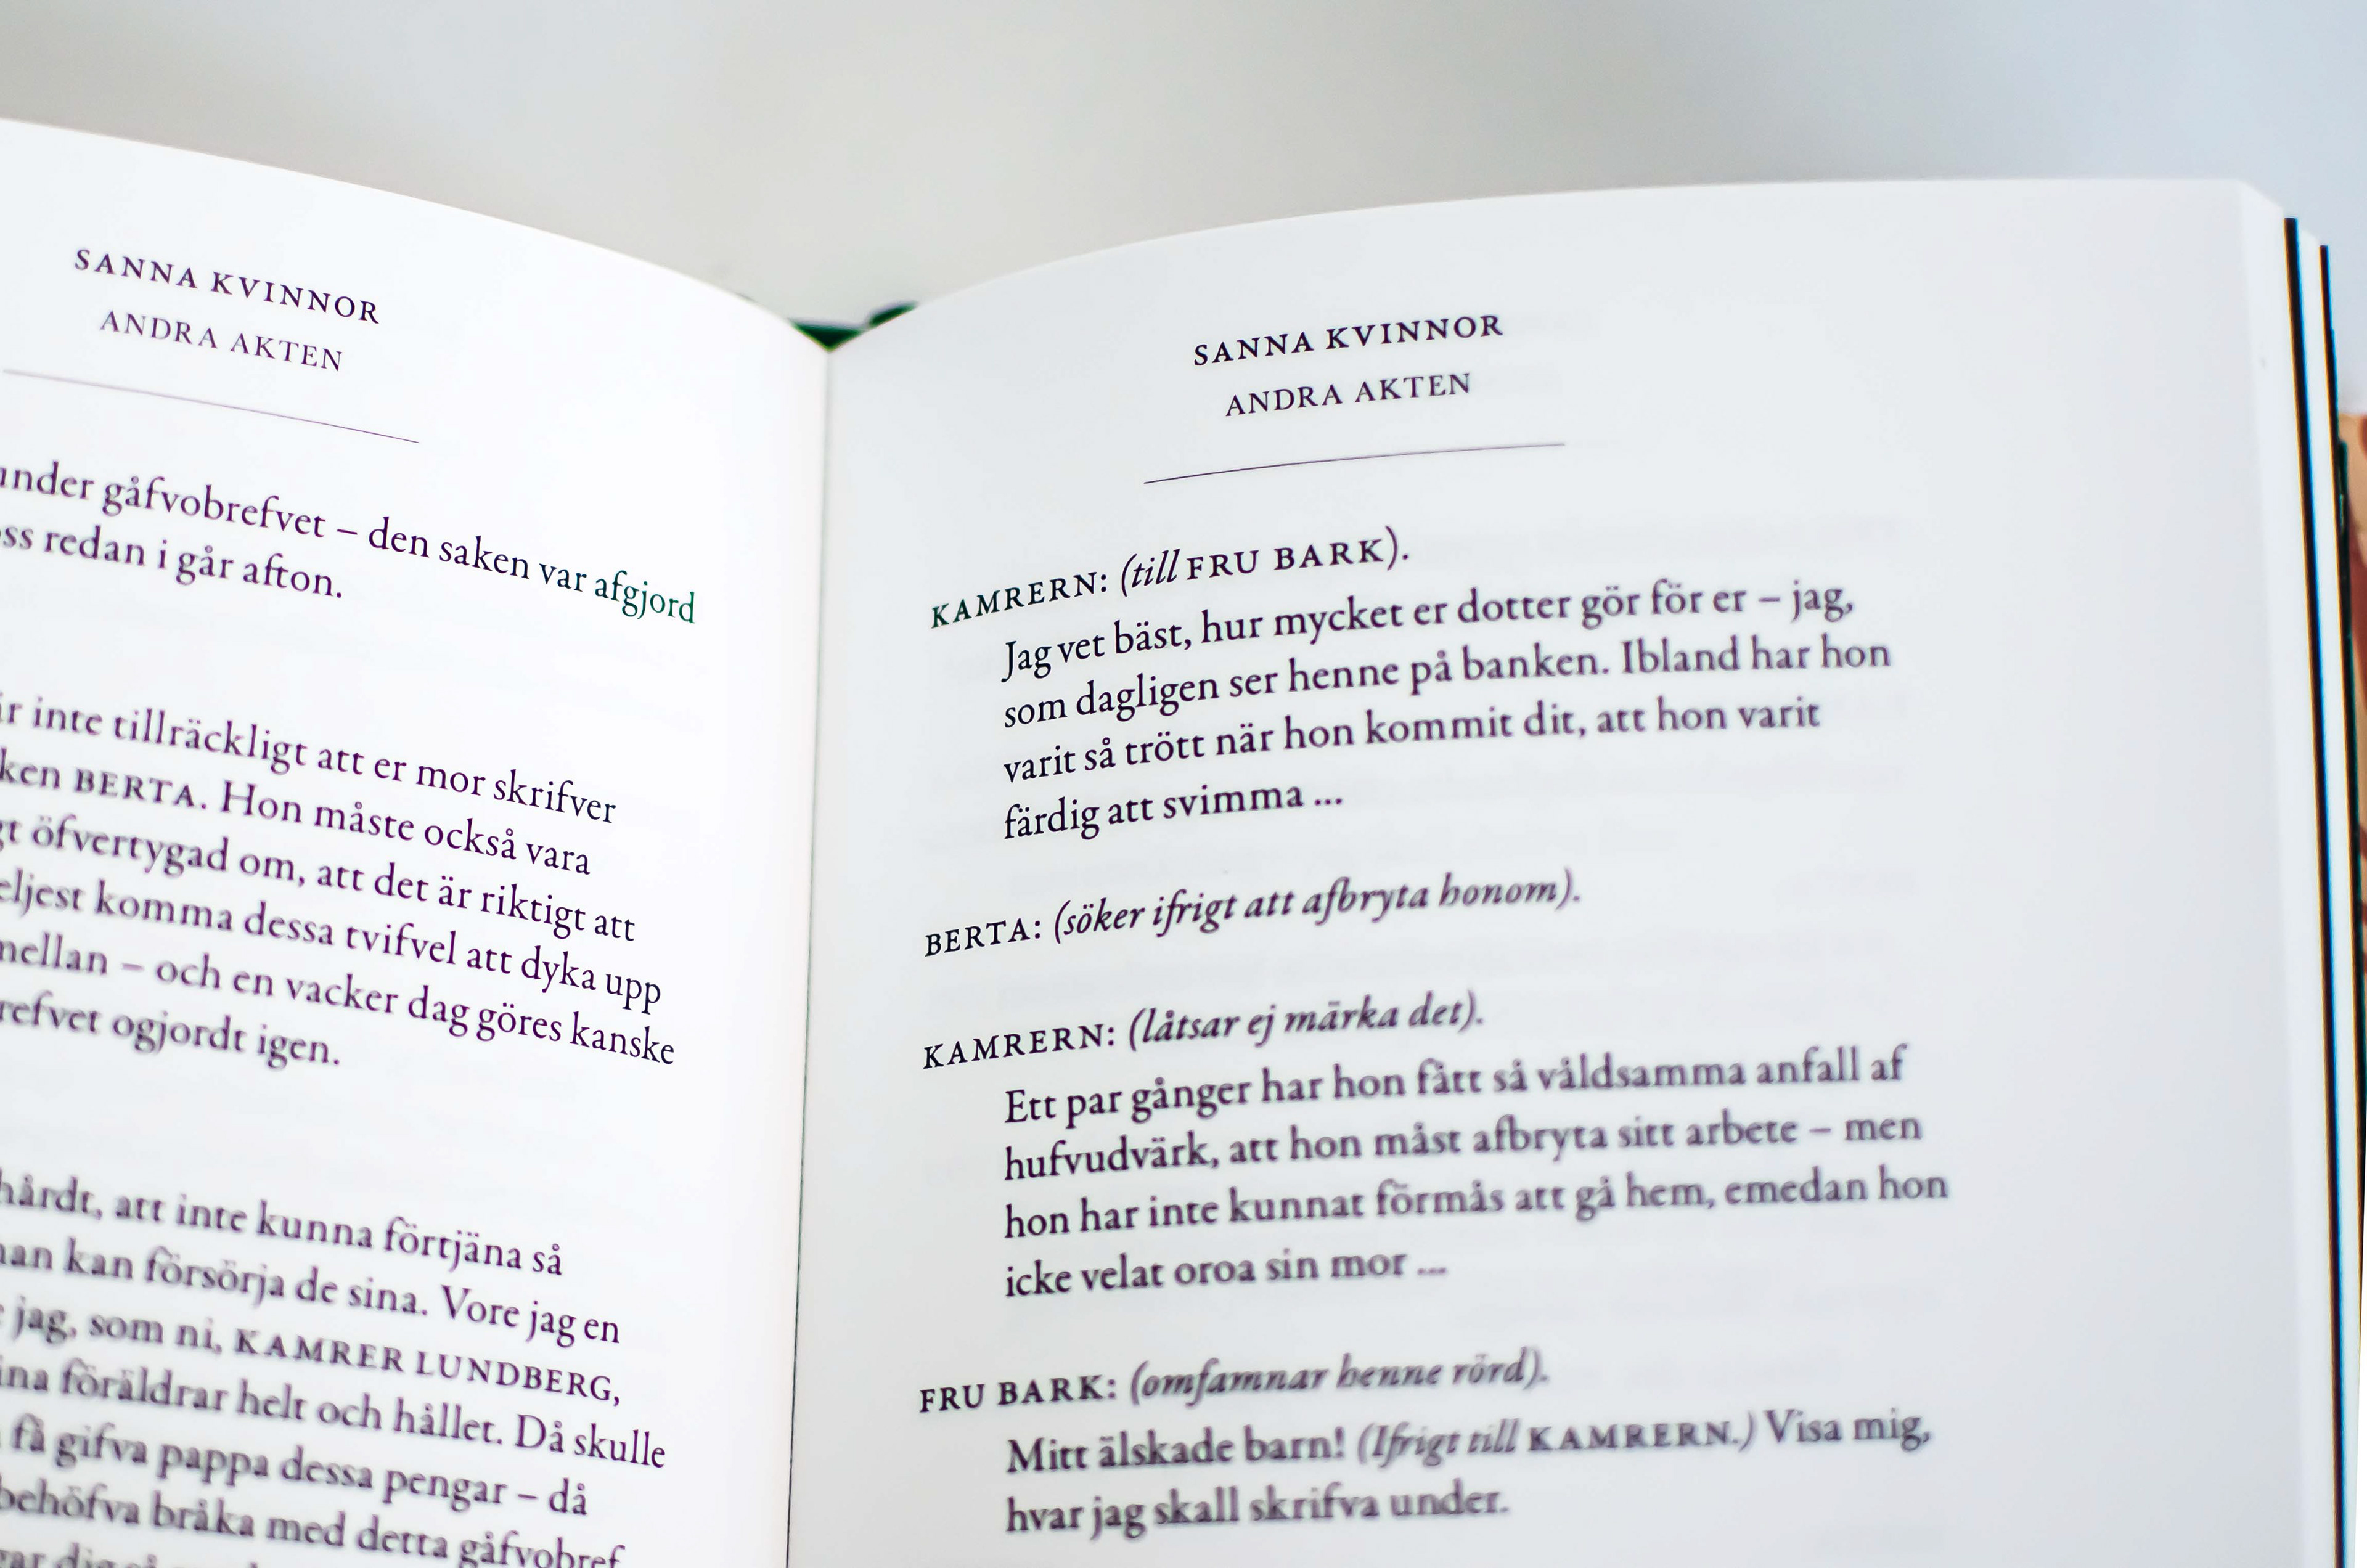 SANNA KVINNOR
ANDRA AKTEN
under gåfvobrefvet – den saken var afgjord
redan i går afton.
inte tillräckligt att er mor skrifver
BERTA. Hon måste också vara
öfvertygad om, att det är riktigt att
komma dessa tvifvel att dyka upp
– och en vacker dag göres kanske
ogjordt igen.
hårdt, att inte kunna förtjäna så
kan försörja de sina. Vore jag en
jag, som ni, KAMRER LUNDBERG,
föräldrar helt och hållet. Då skulle
få gifva pappa dessa pengar – då
behöfva bråka med detta gåfvobref
SANNA KVINNOR
ANDRA AKTEN
KAMRERN: (till FRU BARK).
Jag vet bäst, hur mycket er dotter gör för er – jag,
som dagligen ser henne på banken. Ibland har hon
varit så trött när hon kommit dit, att hon varit
färdig att svimma ...
BERTA: (söker ifrigt att afbryta honom).
KAMRERN: (låtsar ej märka det).
Ett par gånger har hon fått så våldsamma anfall af
hufvudvärk, att hon måst afbryta sitt arbete – men
hon har inte kunnat förmås att gå hem, emedan hon
icke velat oroa sin mor ...
FRU BARK: (omfamnar henne rörd).
Mitt älskade barn! (Ifrigt till KAMRERN.) Visa mig,
hvar jag skall skrifva under.